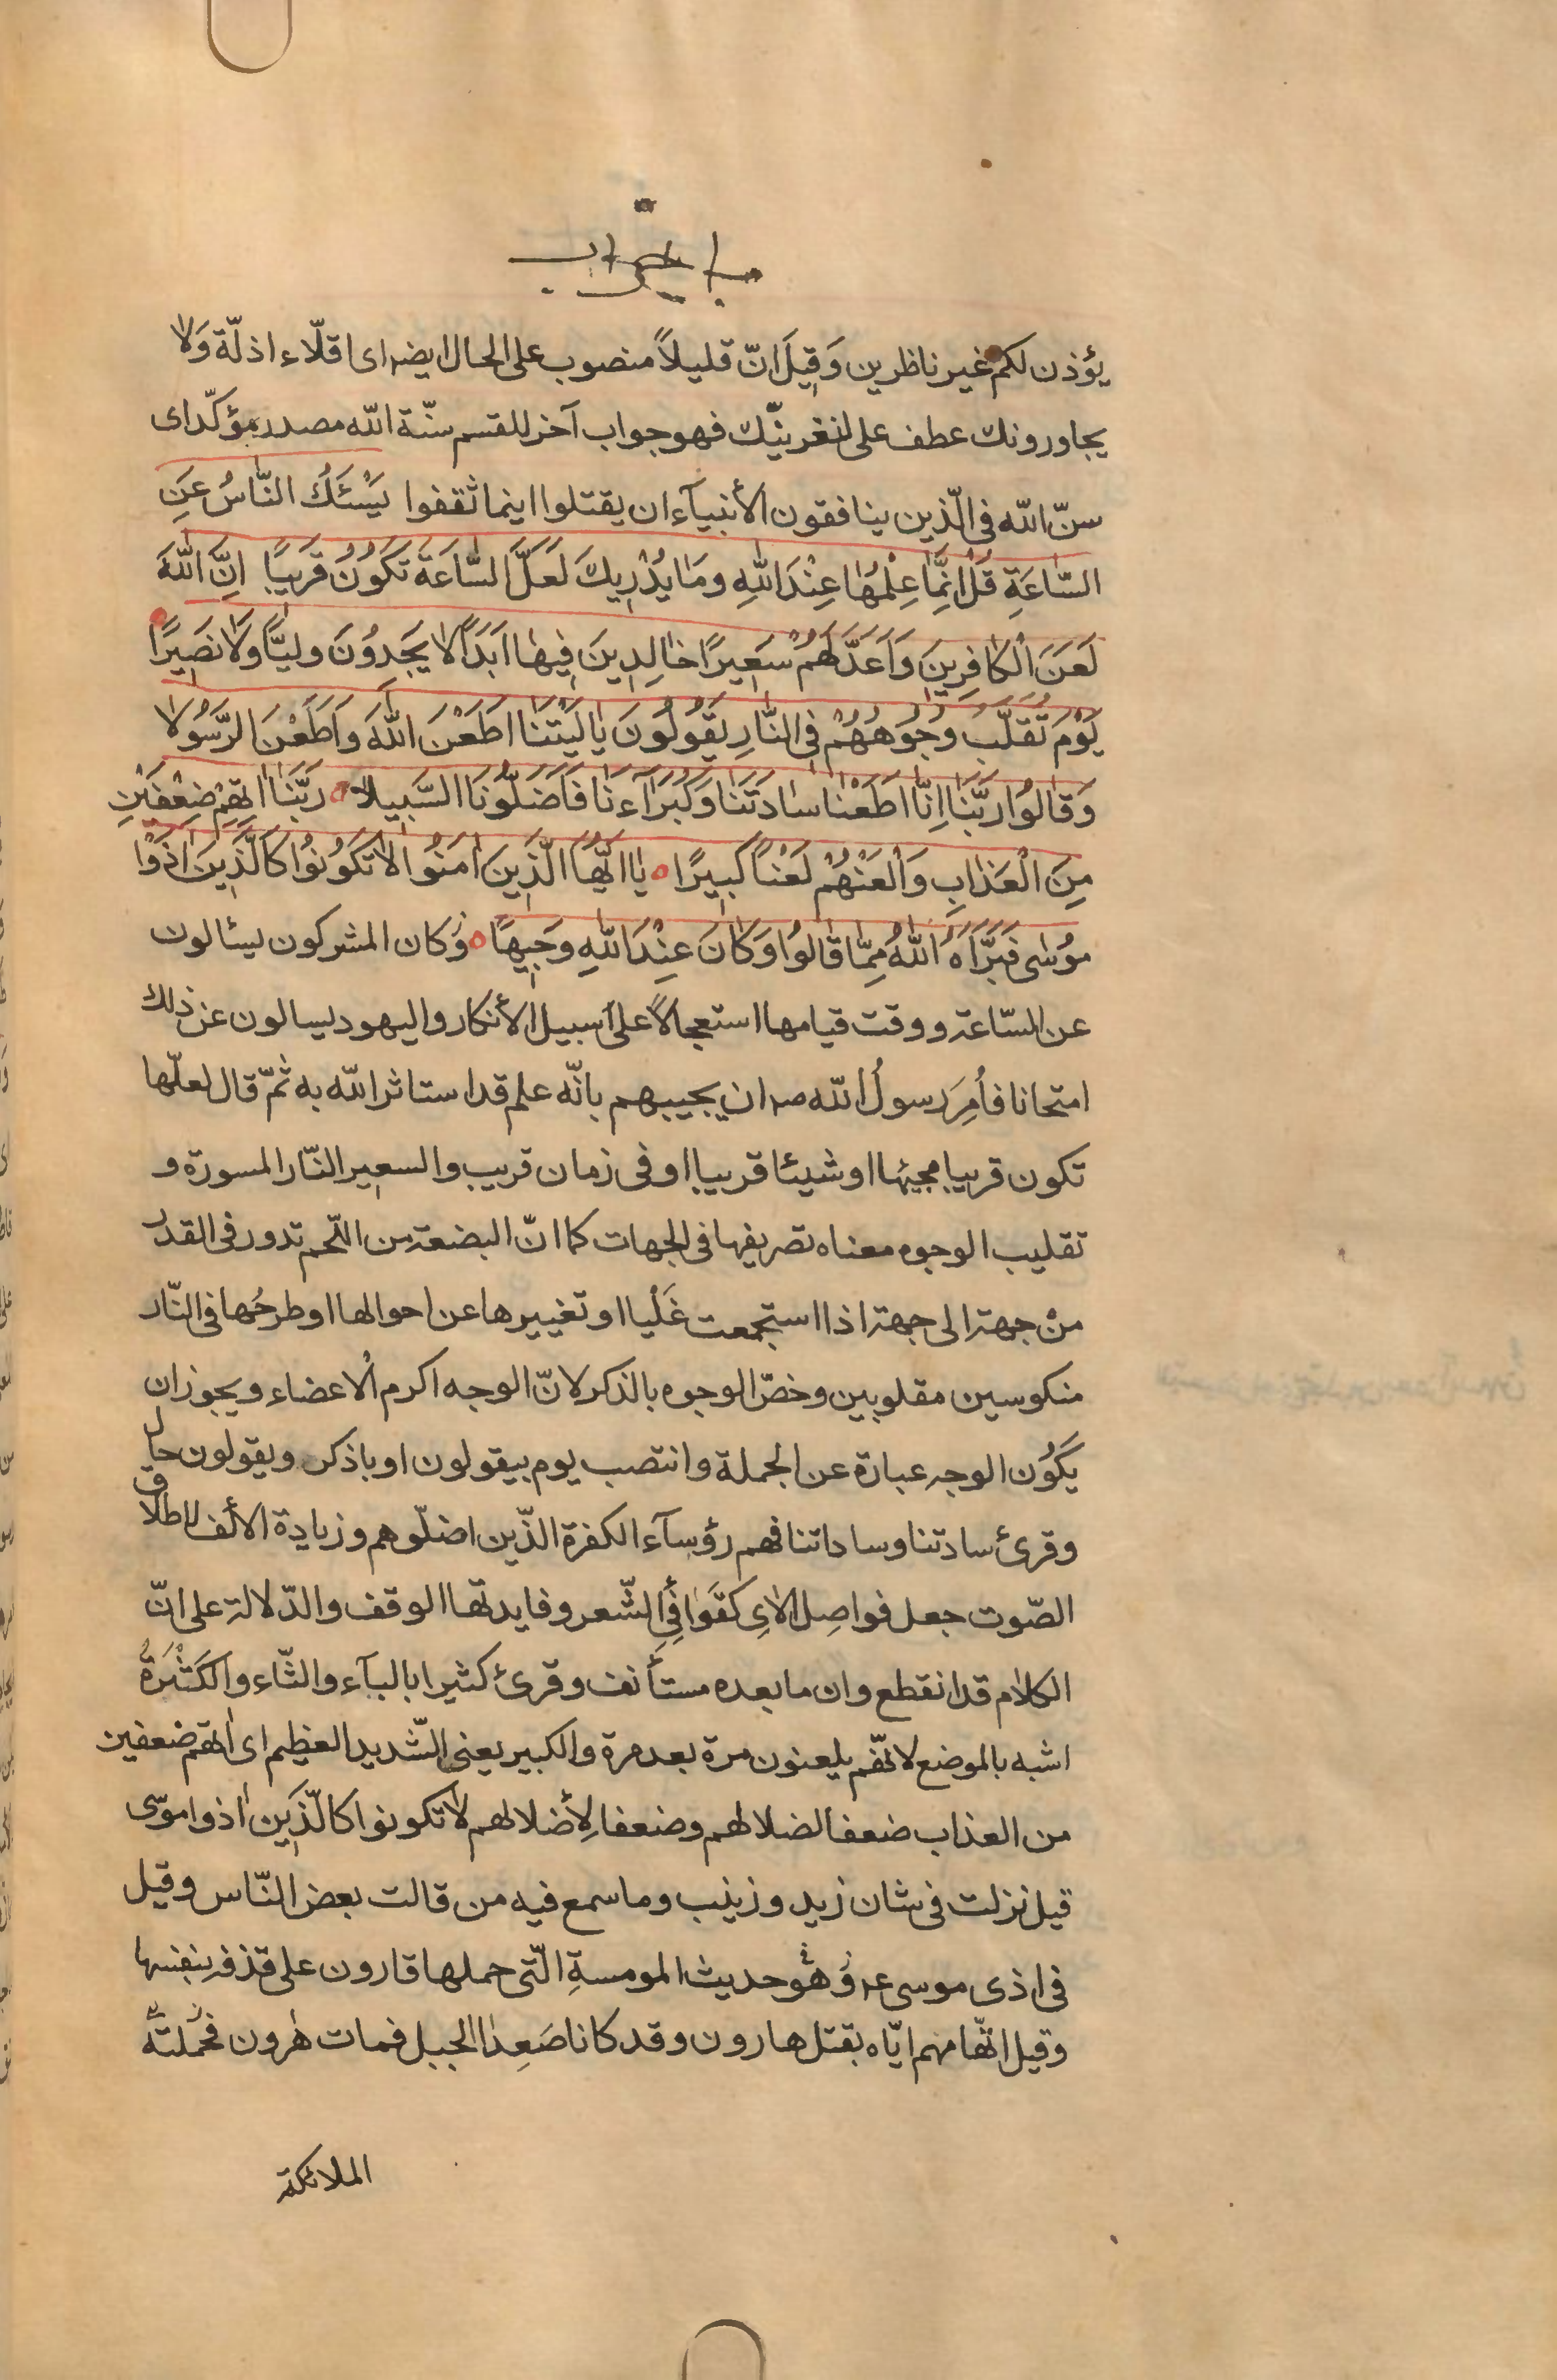 يؤذن لكم غير ناظرين وَقِيلَ انّ قليلاً منصوب على الحال ايضا اى اقلّاء اذلّة وَلا
يجاورونك عطف على لنغرينّك فهو جواب آخر للقسم سنّة الله مصدر مؤكّد اى
سنّ الله فى الّذين ينافقون الأنبيآء ان يقتلوا اينما ثقفوا يَسْئَلُكَ النّاسُ عَنِ
السّاعَةِ قُلْ اِنَّمٰا عِلْمُهٰا عِنْدَ اللهِ ومَا يُدْرِيكَ لَعَلَّ السّٰاعَةَ تَكُونُ قَرِيبًا اِنَّ اللهَ
لَعَنَ الْكٰافِرِينَ وَاَعَدَّ لَهُمْ سَعِيرًا خٰالِدِينَ فِيهٰا اَبَدًا لا يَجِدُونَ وليًّا وَلَا نَصِيرًا
يَوْمَ تُقَلَّبُ وُجُوهُهُمْ فِى النّٰارِ يَقُولُونَ يٰا لَيْتَنَا اَطَعْنَ اللهَ وَاَطَعْنَ الرَّسُولا
وَقٰالُوا رَبَّنَا اِنّٰا اَطَعْنٰا سٰادَتَنَا وَكُبَرَآءَنَا فَاَضَلُّونَا السَّبِيلا ° رَبَّنَا اٰتِهِمْ ضِعْفَيْنِ
مِنَ الْعَذٰابِ وَالْعَنْهُمْ لَعْنًا كَبِيرًا ° يٰا اَيُّهَا الَّذِينَ اٰمَنُوا لا تَكُونُوا كَالَّذِينَ اٰذَوْا
مُوسٰى فَبَرَّأَهُ اللهُ مِمّٰا قٰالُوا وَكٰانَ عِنْدَ اللهِ وَجِيهًا ° وَكان المشركون يسئالون
عن السّاعة ووقت قيامها استعجالاً على سبيل الأنكار واليهود يسالون عن ذلك
امتحانا فأُمِرَ رسولُ الله صـ ان يجيبهم بانّه علم قد استاثر الله به ثمّ قال لعلّها
تكون قريبا مجيئها او شيئا قريبا او فى زمان قريب والسعير النّار المسورة و
تقليب الوجوه معناه تصريفها فى الجهات كما انّ البضعة من اللّحم تدور فى القدر
منْ جهة الى جهة اذا استجمعت غَلْيا او تغييرها عن احوالها او طرحُها فى النّار
منكوسين مقلوبين وخصّ الوجوه بالذكر لانّ الوجه اكرم الْاعضاء ويجوز ان
يَكُون الوجه عبارة عن الجملة وانتصب يوم بيقولون او باذكر ويقولون حال
وقرئ سادتنا وساداتنا فهم رؤسآء الكفرة الّذين اضلّوهم وزيادة الألف لاطلاق
الصّوت جعل فواصِل الاٰىِ كَقَوٰافِى الشّعر وفايدتها الوقف والدّلالة على انّ
الكلام قد انقطع وان ما بعده مستأنف وقرئ كثيرا بالبآء والثّاء والكَثْرَةُ
اشبه بالموضع لانّهم يلعنون مرة بعد مرة والكبير يعنى الشّديد العظيم اى اٰتهم ضعفين
من العذاب ضعفا لضلالهم وضعفا لِأضلالهم لا تكونوا كالّذين اٰذوا موسى
قيل نزلت فى شان زيد وزينب وما سمع فيه من قالت بعض النّاس وقيل
فى اذى موسى عـ وُهُو حديث المومسةِ الّتى حملها قارون على قذفه بنفسها
وقيل اتّهامهم ايّاه بقتل هارون وقد كانا صَعِدا الجبل فمات هٰرون فحملته
الملائكة